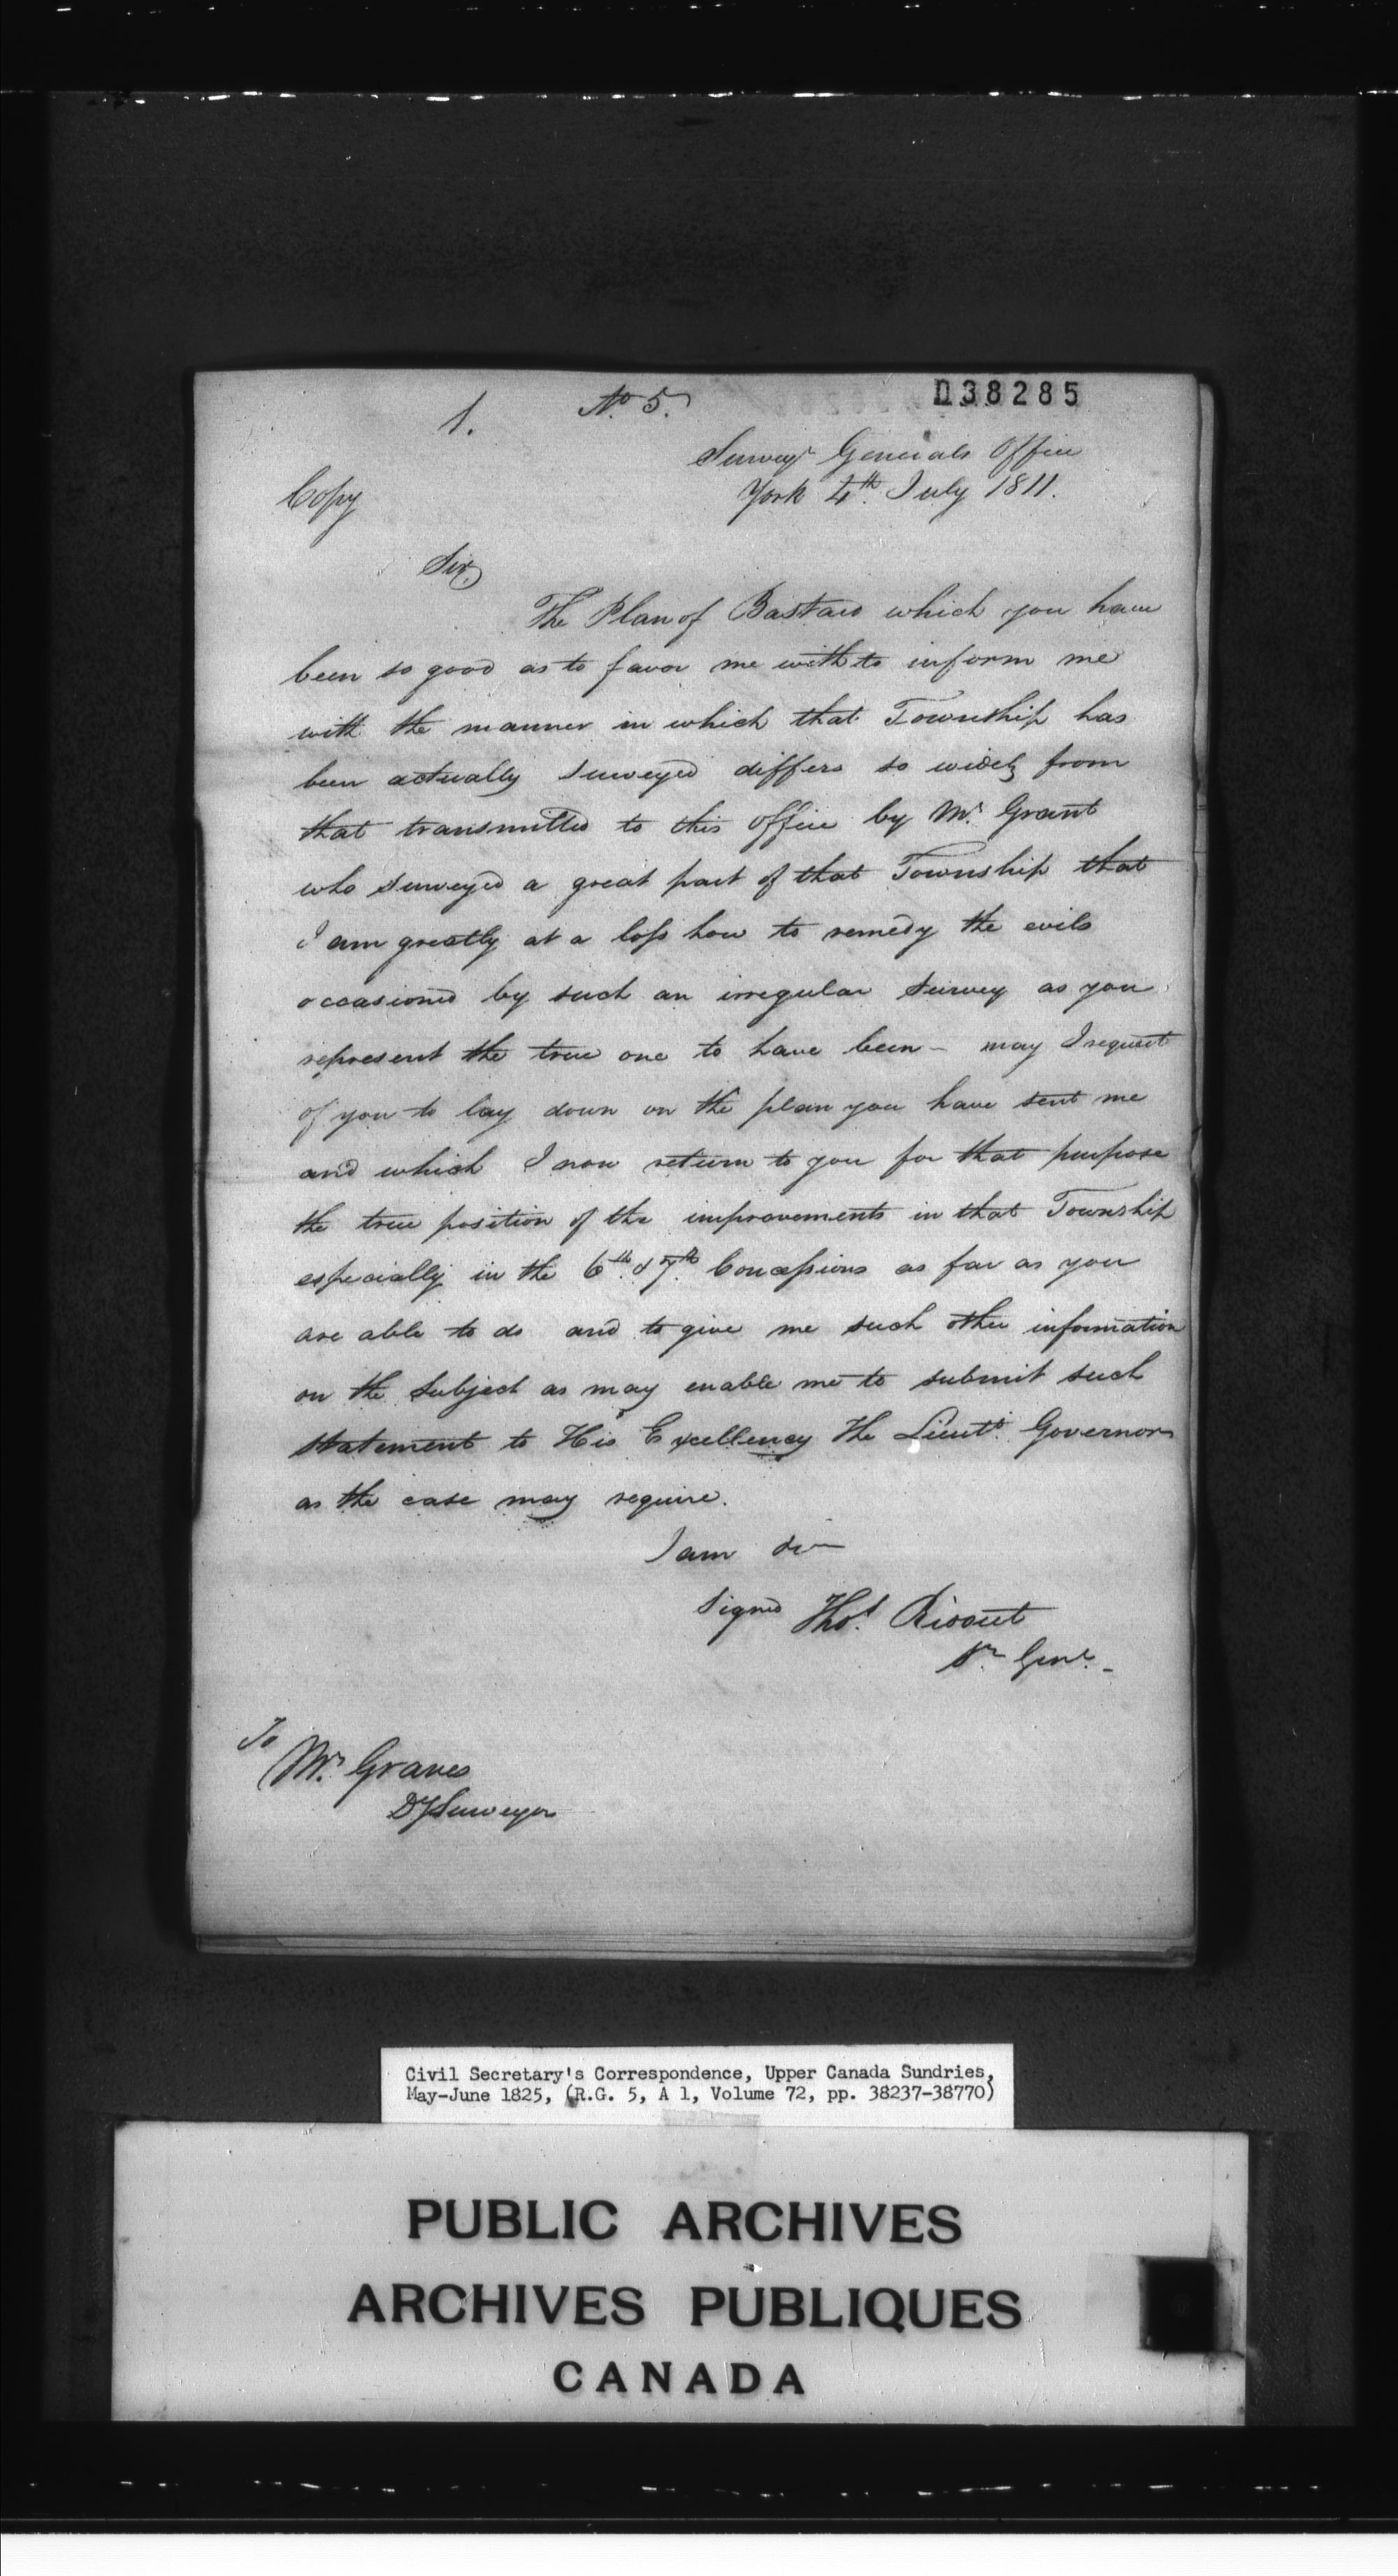 1.
No 5.
038285
Surveyr Generals Office
York 4th July 1811.
Copy
Sir,
The Plan of Bastard which you have
been so good as to favor me with to inform me
with the manner in which that Township has
been actually surveyed differs so widely from
that transmitted to this office by Mr Grant
who surveyed a great part of that Township that
I am greatly at a loss how to remedy the evils
occasioned by such an irregular Survey as you
represent the true one to have been - may I request
of you to lay down on the plan you have sent me
and which I now return to you for that purpose
the true position of the improvements in that Township
especially in the 6th & 7th Concessions as far as you
are able to do and to give me such other information
on the Subject as may enable me to submit such
statement to His Excellency the Lieutt Governor
as the case may require.
I am Sir
Signed Thos. Ridout
Sr Genl. -
To
Mr. Graves
Dy Surveyor
Civil Secretary's Correspondence, Upper Canada Sundries,
May-June 1825, (R.G. 5, A 1, Volume 72, pp. 38237-38770)
PUBLIC ARCHIVES
ARCHIVES PUBLIQUES
CANADA